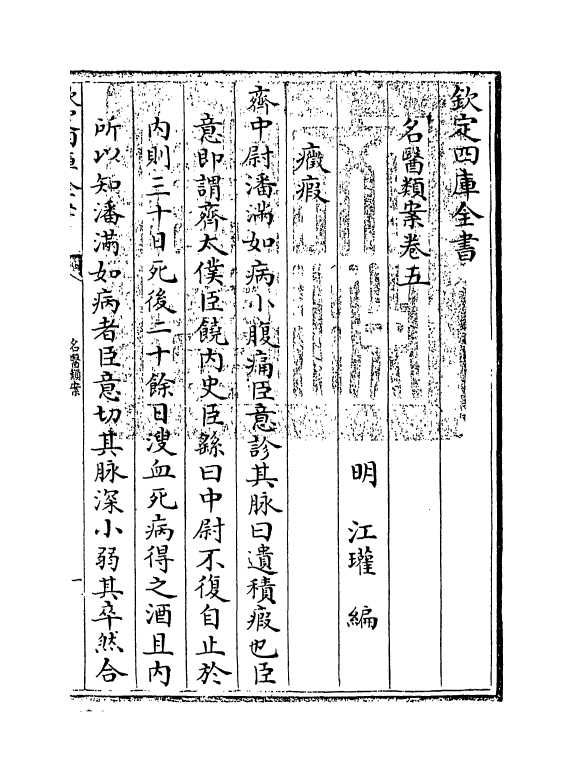 欽定四庫全書
名醫類案卷五
明 江瓘 編
癥瘕
齊中尉潘滿如病小腹痛臣意診其脉曰遺積瘕也臣
意即謂齊太僕臣饒內史臣繇曰中尉不復自止於
內則三十日死後二十餘日溲血死病得之酒且內
所以知潘滿如病者臣意切其脉深小弱其卒然合
名醫類案
一